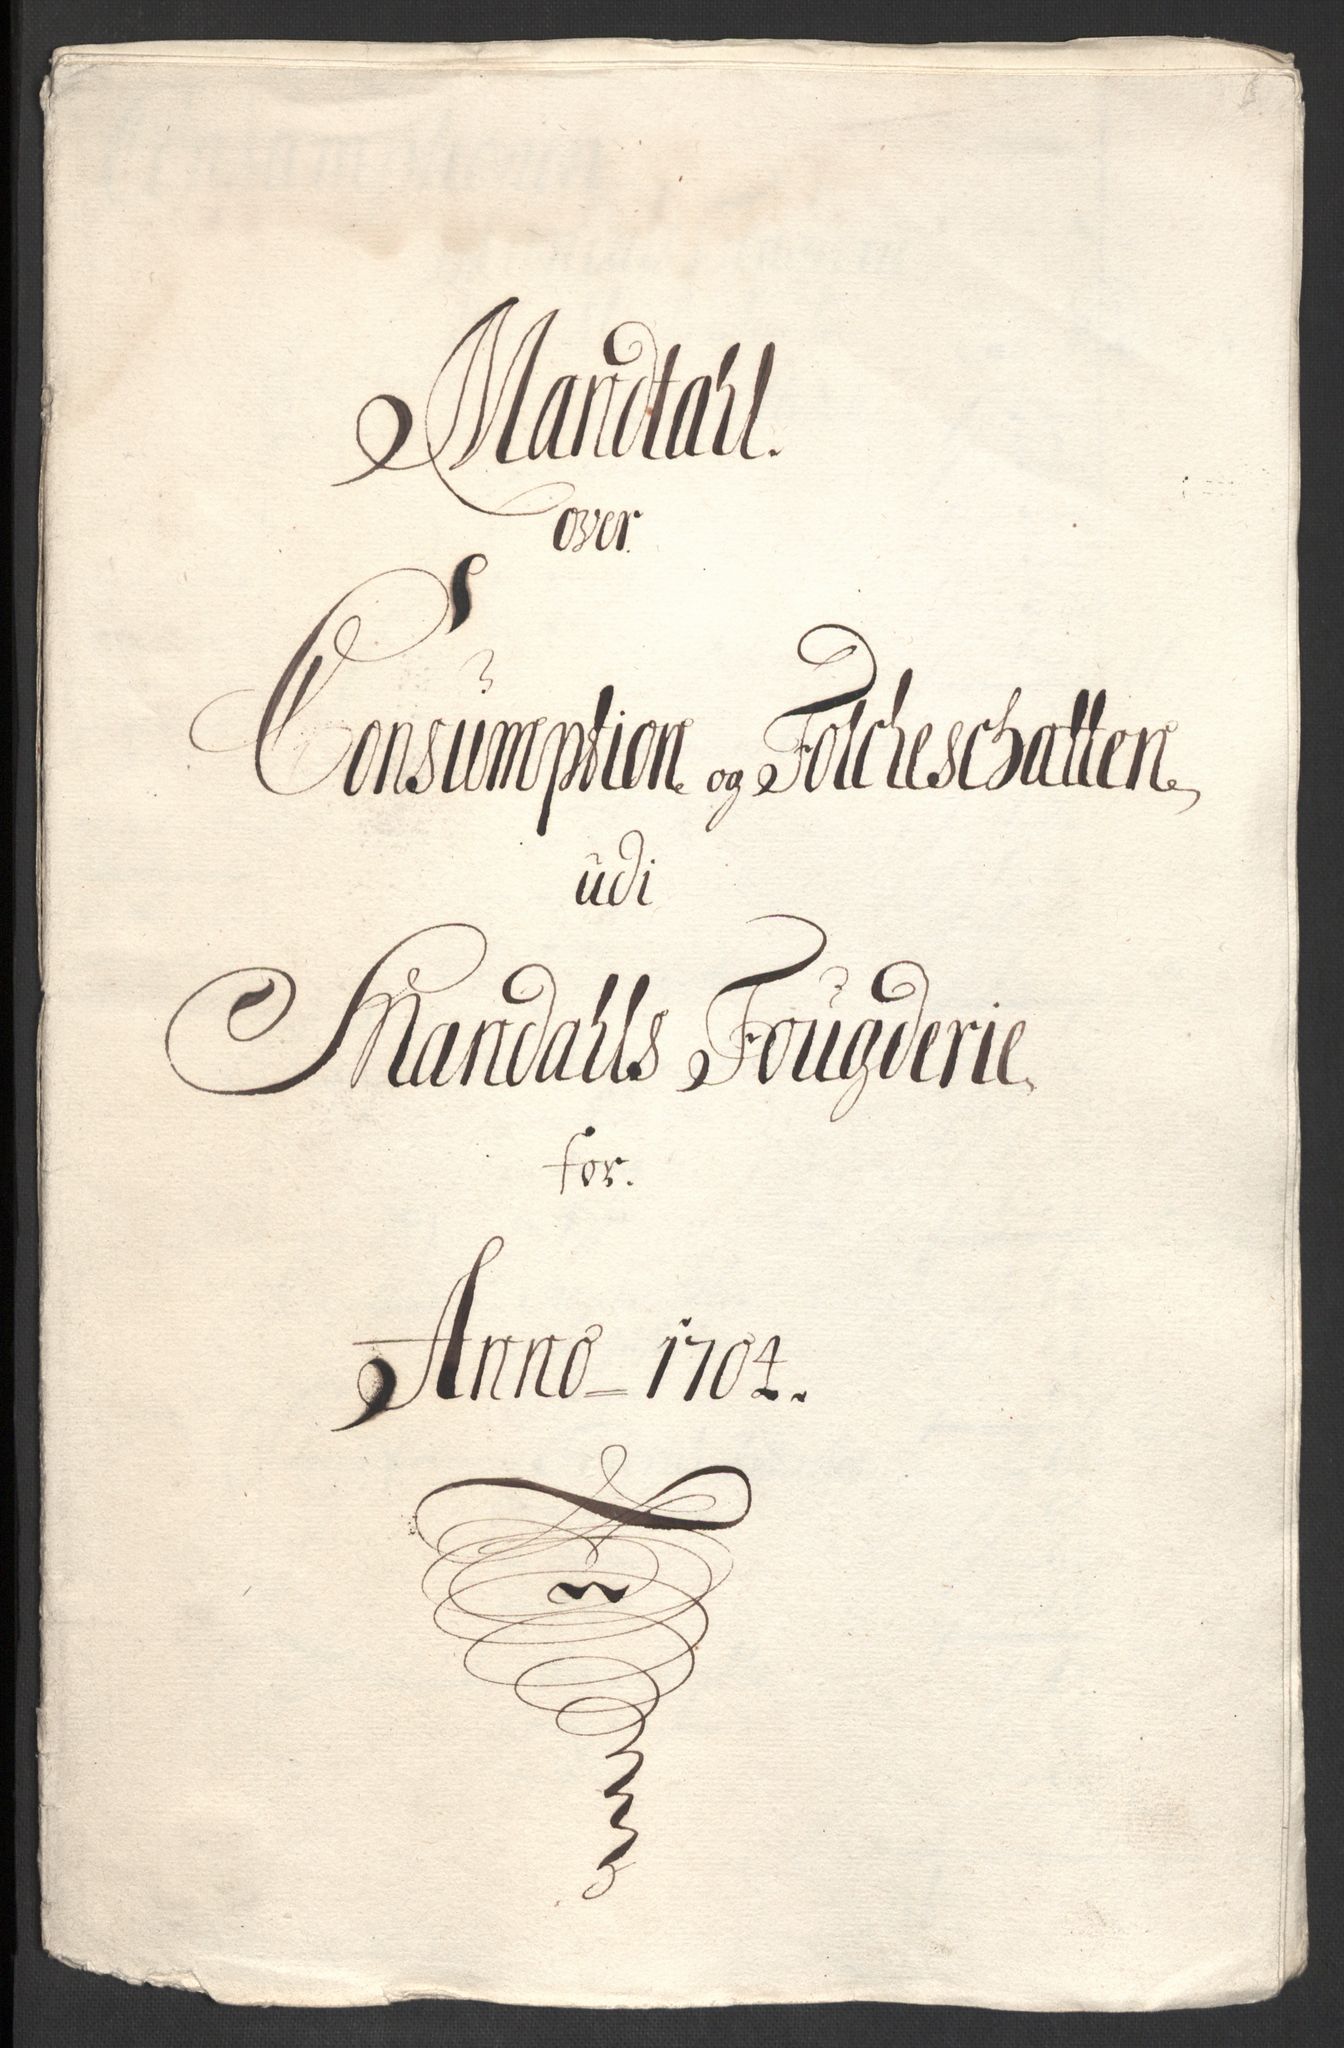 Mandtahl.
over
Consumption og Folcheschatten
udi
Mandahls Fougderie
for.
Anno = 1704.